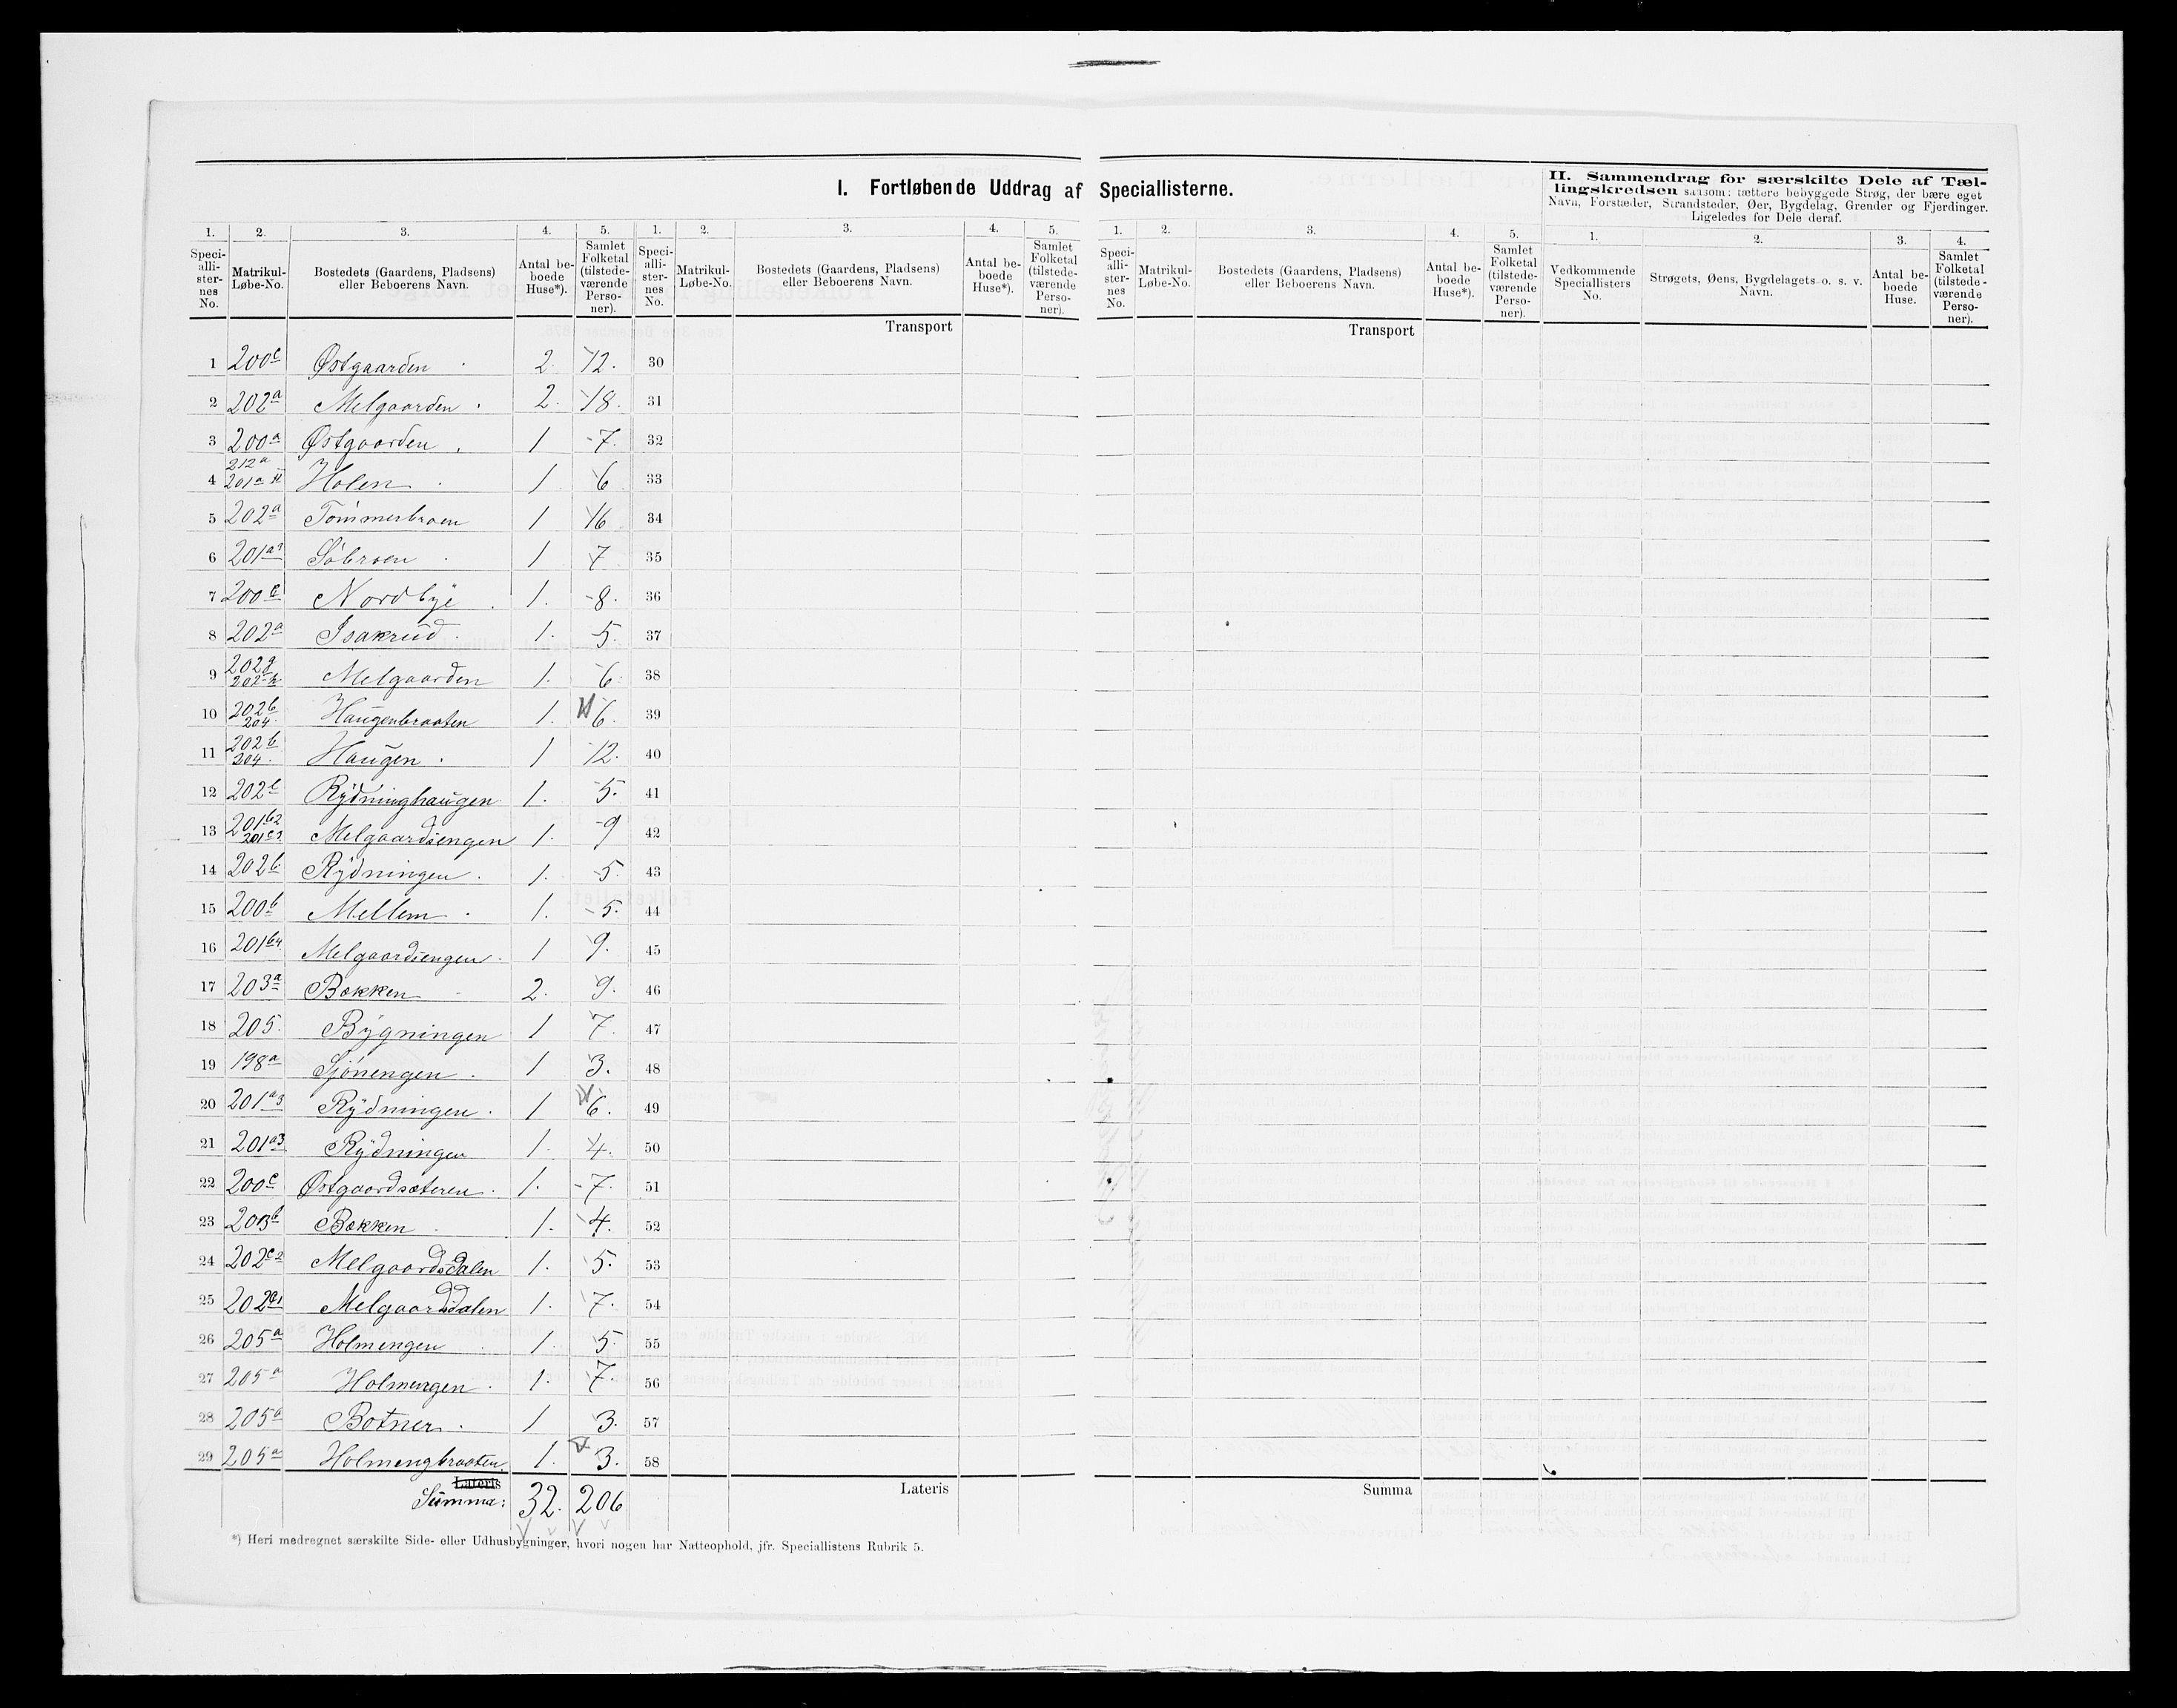 I. Fortløbende Uddrag af Speciallisterne.
II. Sammendrag for særskilte Dele af Tæl-
lingskredsen saasom: tættere bebyggede Strøg, der bære eget
Navn, Forstæder, Strandsteder, Øer, Bygdelag, Grender og Fjerdinger.
Ligeledes for Dele deraf.
1. 2. 3. 4. 5. 1. 2. 3. 4. 5. 1. 2. 3. 4. 5. 1. 2. 3. 4.
Speciallisternes No. Matrikul-Løbe-No. Bostedets (Gaardens, Pladsens) eller Beboerens Navn. Antal beboede Huse*). Samlet Folketal (tilstedeværende Personer).
Speciallisternes No. Matrikul-Løbe-No. Bostedets (Gaardens, Pladsens) eller Beboerens Navn. Antal beboede Huse*). Samlet Folketal (tilstedeværende Personer).
Speciallisternes No. Matrikul-Løbe-No. Bostedets (Gaardens, Pladsens) eller Beboerens Navn. Antal beboede Huse*). Samlet Folketal (tilstedeværende Personer).
Vedkommende Speciallisters No. Strøgets, Øens, Bygdelagets o. s. v. Navn. Antal beboede Huse. Samlet Folketal (tilstedeværende Personer).
Transport Transport
1 200c Østgaarden 2. 12. 30
2 202a Melgaarden. 2. 18. 31
3 200a Østgaarden. 1 7. 32
4 212a 201a Holen 1 6 33
5 202a Tømmerbraen 1 16 34
6 201a Søbraen 1 7 35
7 200c Nordbye. 1. 8. 36
8 202a Isakrud. 1. 5. 37
9 202g 202h Melgaarden 1. 6. 38
10 202b 204. Haugenbraaten 1. 6. 39
11 202b 204. Haugen. 1 12. 40
12 202 Rydninghaugen 1. 5. 41
13 201b2 201c Melgaardsengen 1. 9 42
14 202b Rydningen. 1. 5. 43
15 200b Mellem. 1. 5. 44
16 201b4 Melgaardsengen. 1 9. 45
17 203a Bækken 2. 9. 46
18 205. Bygningen 1 7. 47
19 198a Sjønengen. 1 3. 48
20 201a3 Rydningen. 1 6. 49
21 201a3 Rydningen 1. 4. 50
22 200c Østgaardsæteren. 1. 7. 51
23 203b Bækken 1. 4. 52
24 202c2 Melgaardsdalen 1. 5. 53
25 202c1 Melgaardsdalen 1. 7. 54
26 205a Holmengen 1. 5. 55
27 205a Holmengen. 1. 7. 56
28 205a Botner. 1 3. 57
29 205a Holmengbraaten. 1. 3. 58
Lateris Lateris Summa
Summa: 32. 206
*) Heri medregnet særskilte Side- eller Udhusbygninger, hvori nogen har Natteophold, jfr. Speciallistens Rubrik 5.